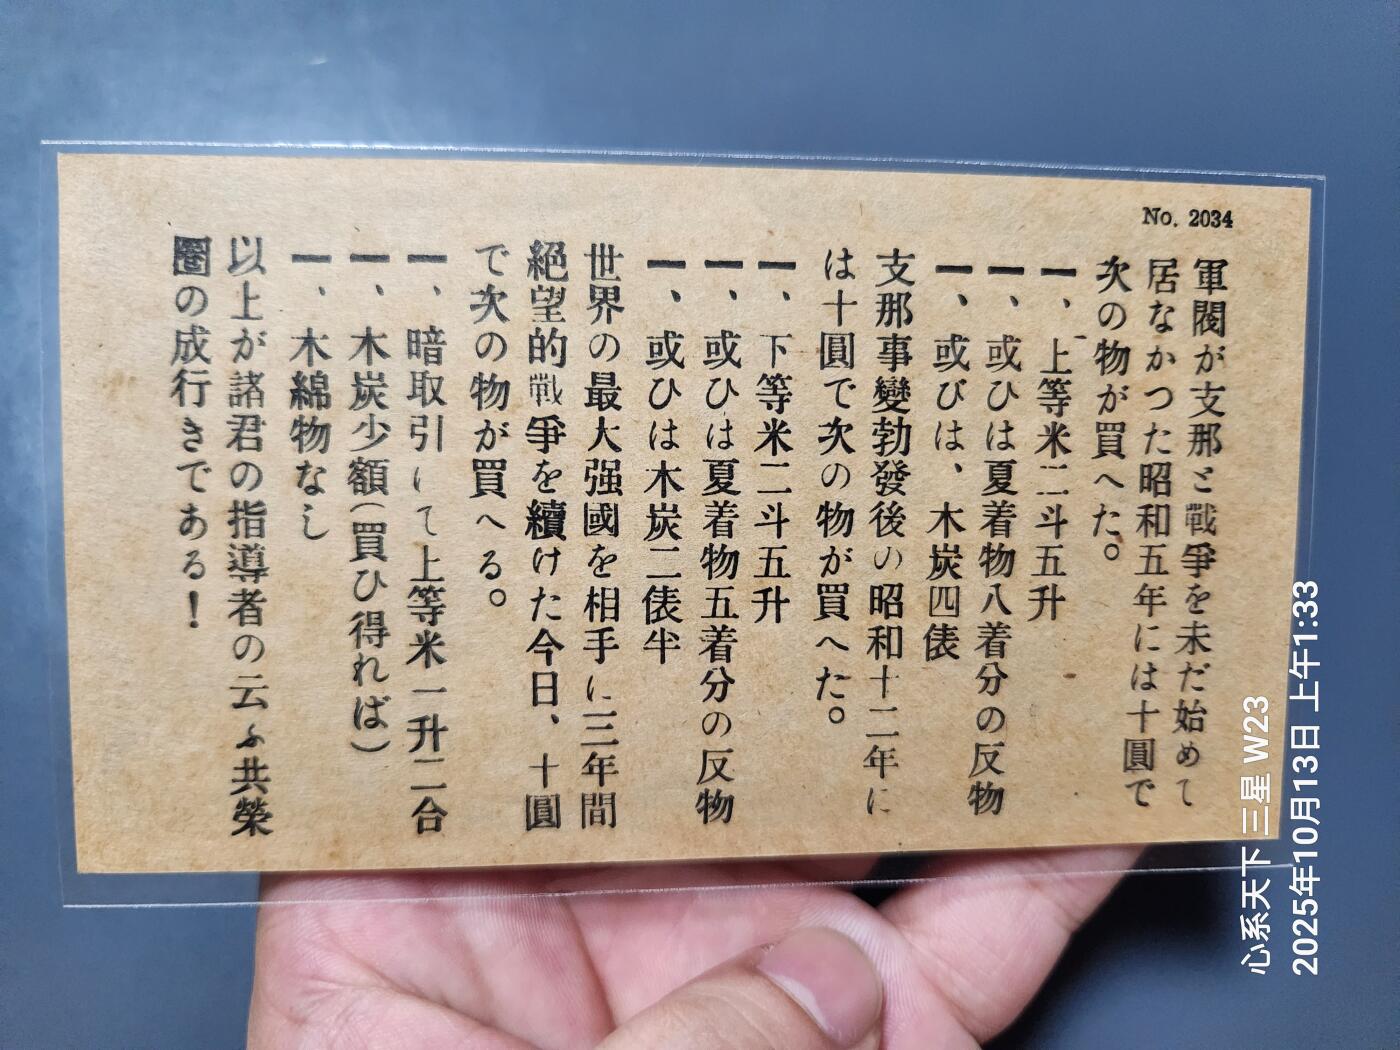 No. 2034
軍閥が支那と戰爭を未だ始めて
居なかつた昭和五年には十圓で
次の物が買へた。
一、上等米二斗五升
一、或ひは夏着物八着分の反物
一、或びは、木炭四俵
支那事變勃發後の昭和十二年に
は十圓で次の物が買へた。
一、下等米二斗五升
一、或ひは夏着物五着分の反物
一、或ひは木炭二俵半
世界の最大强國を相手に三年間
絕望的戰爭を續けた今日、十圓
で次の物が買へる。
一、暗取引にて上等米一升二合
一、木炭少額(買ひ得れば)
一、木綿物なし
以上が諸君の指導者の云ふ共榮
圏の成行きである!
心系天下 三星 W23
2025年10月13日 上午1:33